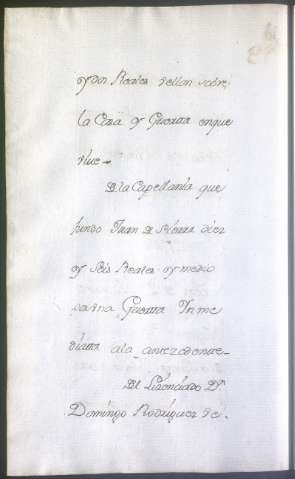 y dos Reales vellon sobre
la Casa y Guerta enque
viue
D. la Capellania que
fundo Juan de diez
y Seis Reales y medio
Guerta Inme
diata ala antezedente
El Lizenciado Dn.
Domingo Rodriguez de